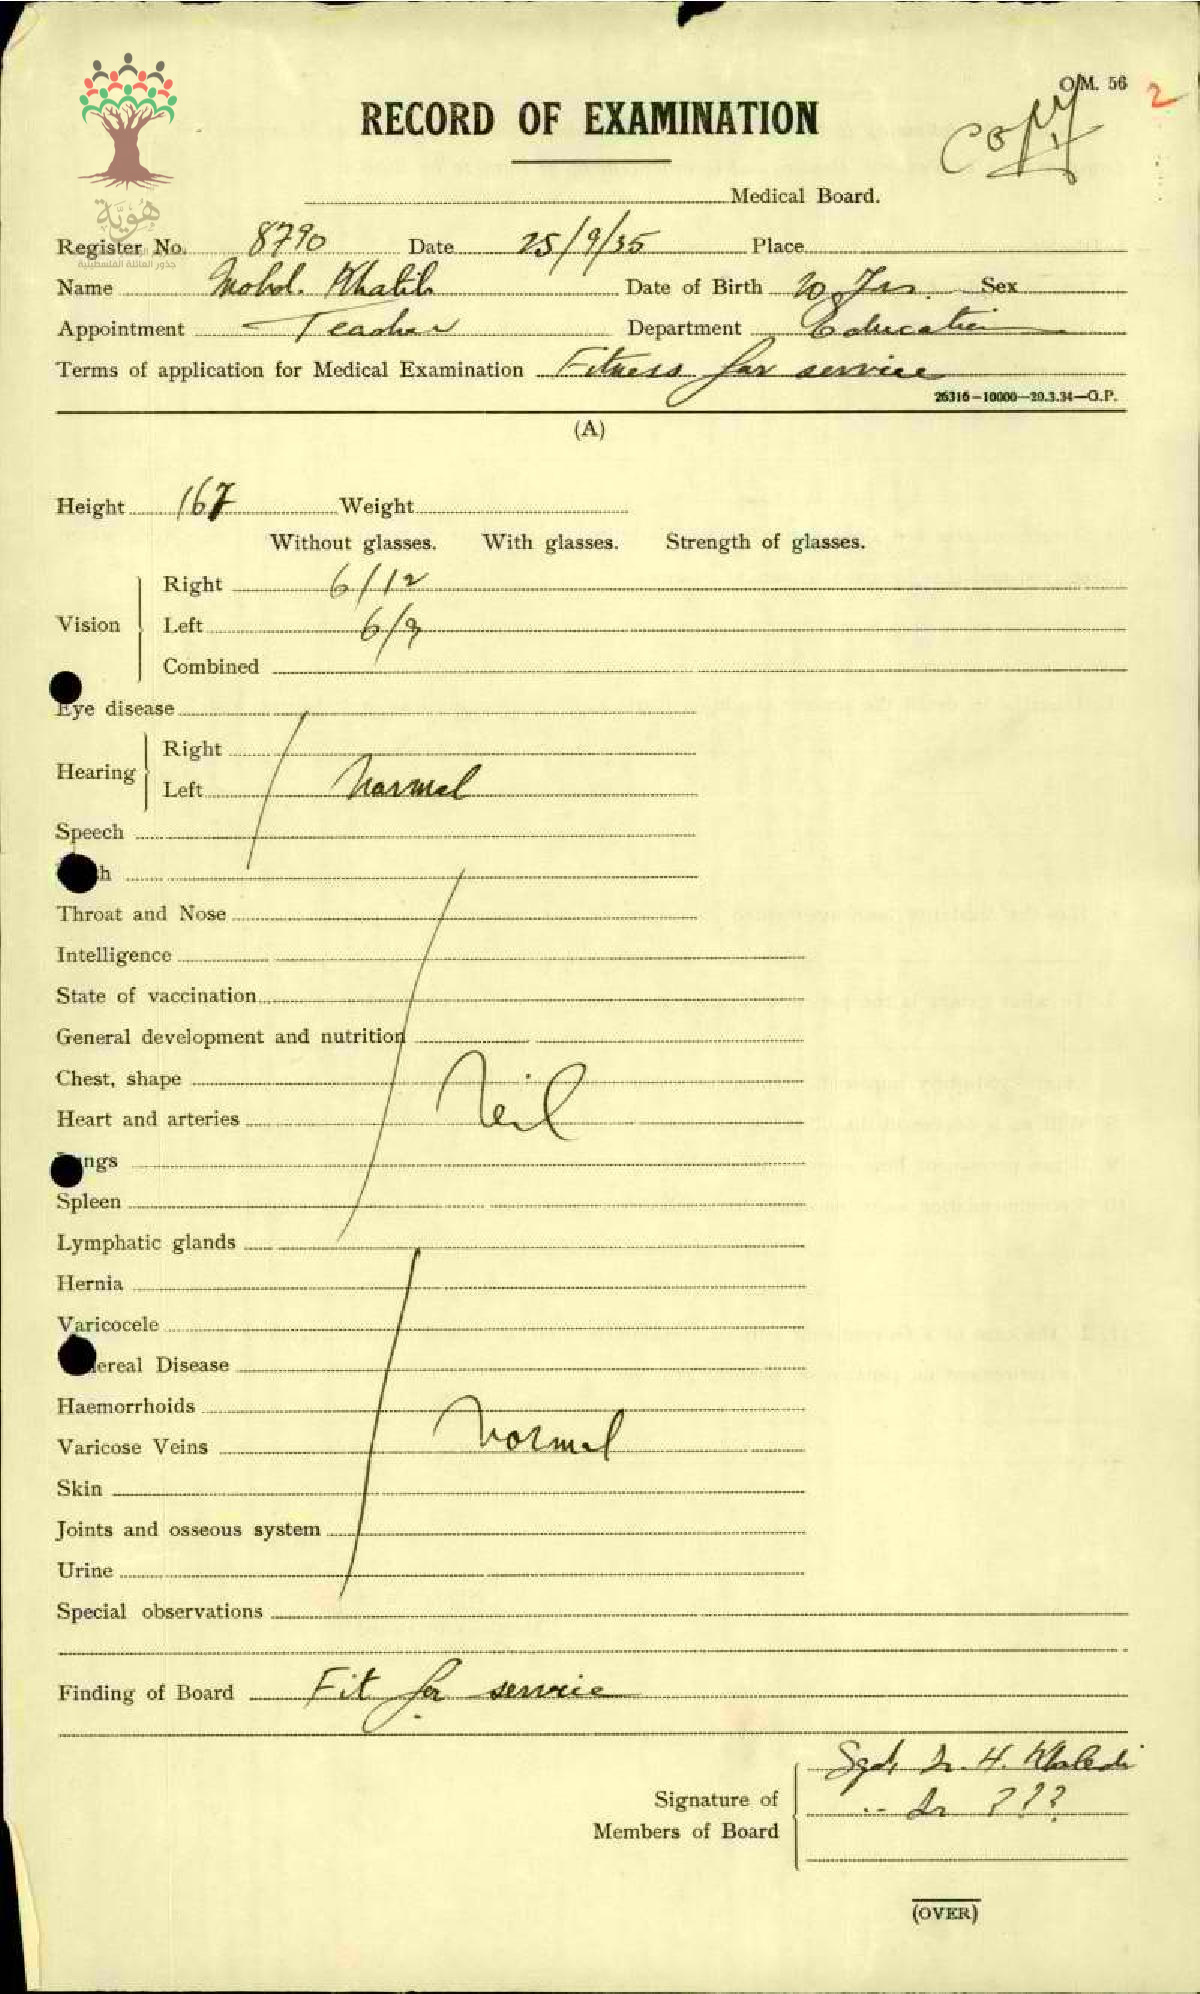 O.M. 56
2
RECORD OF EXAMINATION
Copy
Medical Board.
هُوِيَّة
جذور العائلة الفلسطينية
Register No. 8790 Date 25/9/35 Place
Name Mohd. Khalil Date of Birth 20 Yrs. Sex
Appointment Teacher Department Education
Terms of application for Medical Examination Fitness for service
26316-10000-20.3.34-G.P.
(A)
Height 167 Weight
Without glasses. With glasses. Strength of glasses.
Right 6/12
Vision Left 6/9
Combined
Eye disease
Right
Hearing
Left Normal
Speech
h
Throat and Nose
Intelligence
State of vaccination
General development and nutrition
Chest, shape
Heart and arteries Neil
ngs
Spleen
Lymphatic glands
Hernia
Varicocele
ereal Disease
Haemorrhoids
Varicose Veins Normal
Skin
Joints and osseous system
Urine
Special observations
Finding of Board Fit for service
Sgd. Dr. H. Khaledi
Signature of
Dr ???
Members of Board
(OVER)